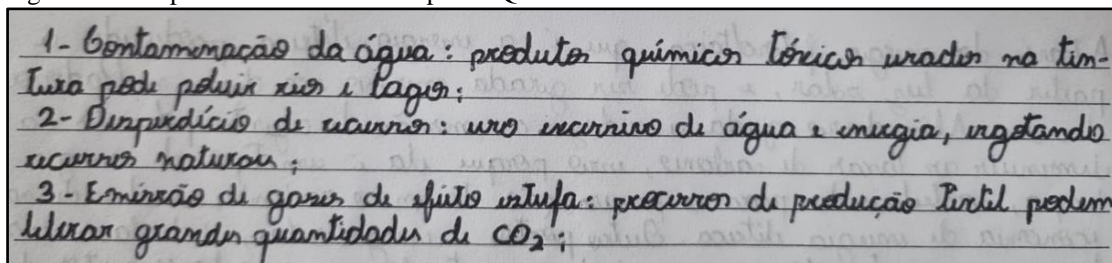 1- Contaminação da água: produtos químicos tóxicos usados na tin-
tura pode poluir rios e lagos;
2- Desperdício de recursos: uso excessivo de água e energia, esgotando
recursos naturais;
3- Emissão de gases de efeito estufa: processos de produção têxtil podem
liberar grandes quantidades de CO2;